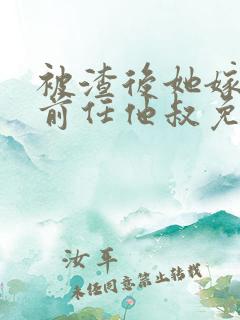 被渣后她嫁
前任他叔免
汝平
未经同意禁止转载